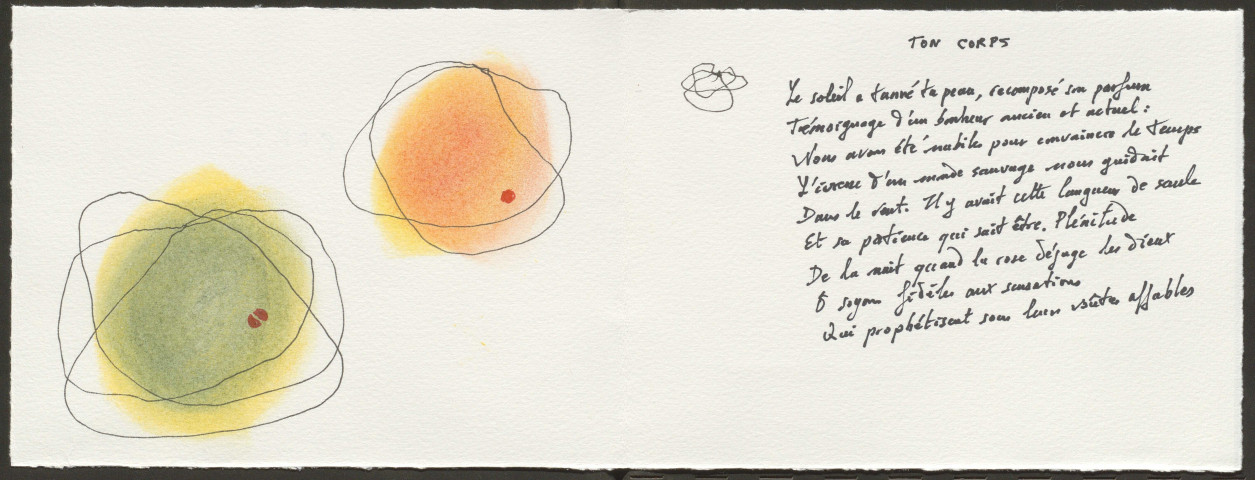 TON CORPS
Le soleil a tanné ta peau, recomposé son parfum
Témoignage d'un bonheur ancien et actuel :
Nous avons été nubiles pour convaincre le temps
L'ivresse d'un monde sauvage nous guidait
Dans le vent. Il y avait cette langueur de saule
Et sa patience qui sait être. Plénitude
De la nuit quand la rose déjuge les dieux
Ô soyons fidèles aux sensations
Qui prophétisent sous leurs voûtes affables